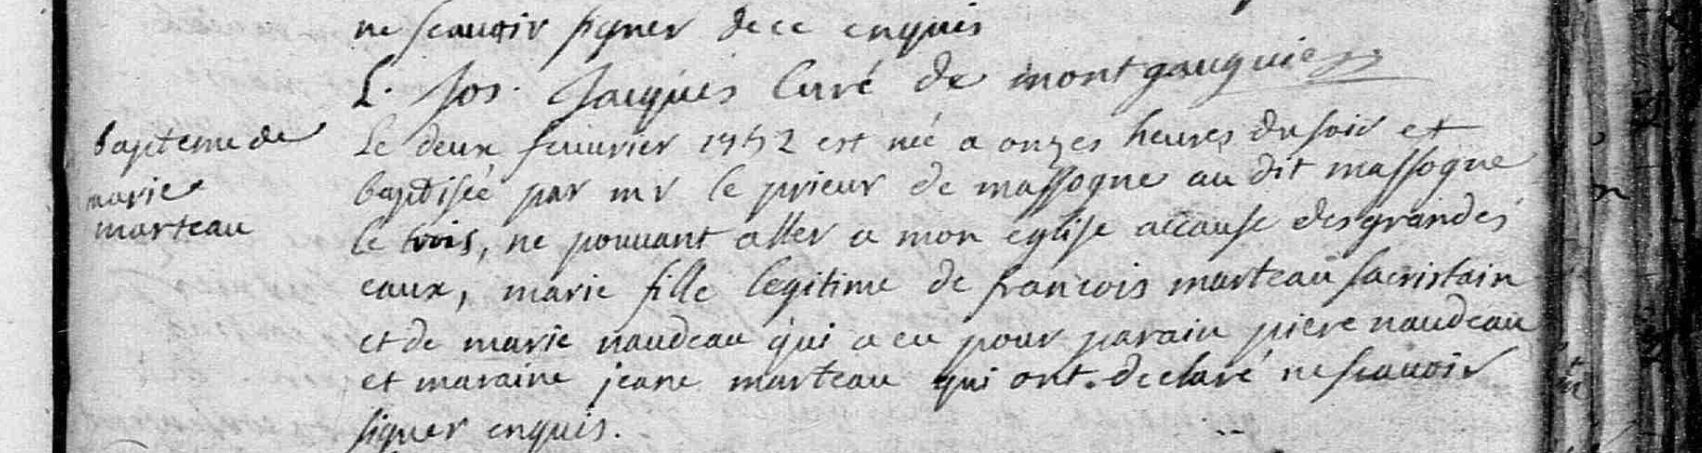 ne scauoir signer de ce enquis
L. Jos. Jacques Curé de montgauguier
bapteme de
marie
marteau
Le deux feuurier 1752 est née a onzes heures du soir et
baptisée par mr le prieur de massogne au dit massogne
le trois, ne pouuant aller a mon eglise accause des grandes
eaux, marie fille legitime de francois marteau sacristain
et de marie naudeau qui a eu pour parain piere naudeau
et maraine jeane marteau qui ont declaré ne scauoir
signer enquis.